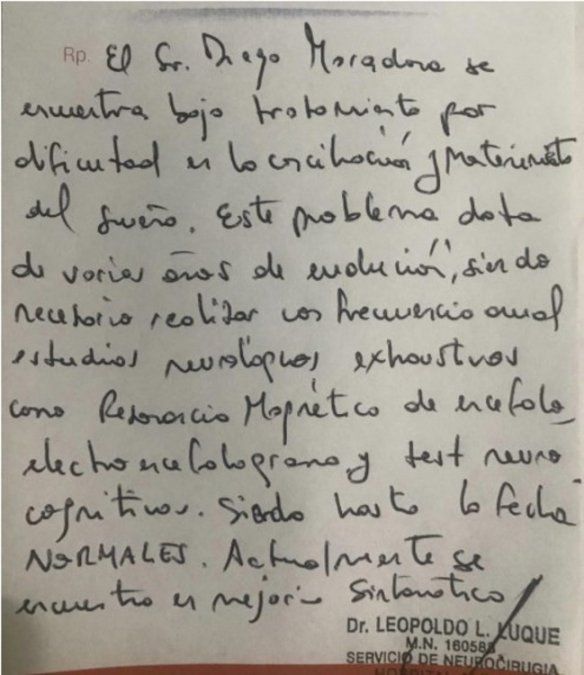 Rp. El Sr. Diego Maradona se
encuentra bajo tratamiento por
dificultad en la conciliación y mantenimiento
del sueño. Este problema data
de varios años de evolución, siendo
necesario realizar con frecuencia anual
estudios neurológicos exhaustivos
como Resonancia Magnética de encefalo,
electroencefalograma, y test neuro
cognitivos. Siendo hasta la fecha
NORMALES. Actualmente se
encuentra en mejoría sintomático
Dr. LEOPOLDO L. LUQUE
M.N. 160583
SERVICIO DE NEUROCIRUGIA
HOSPITAL